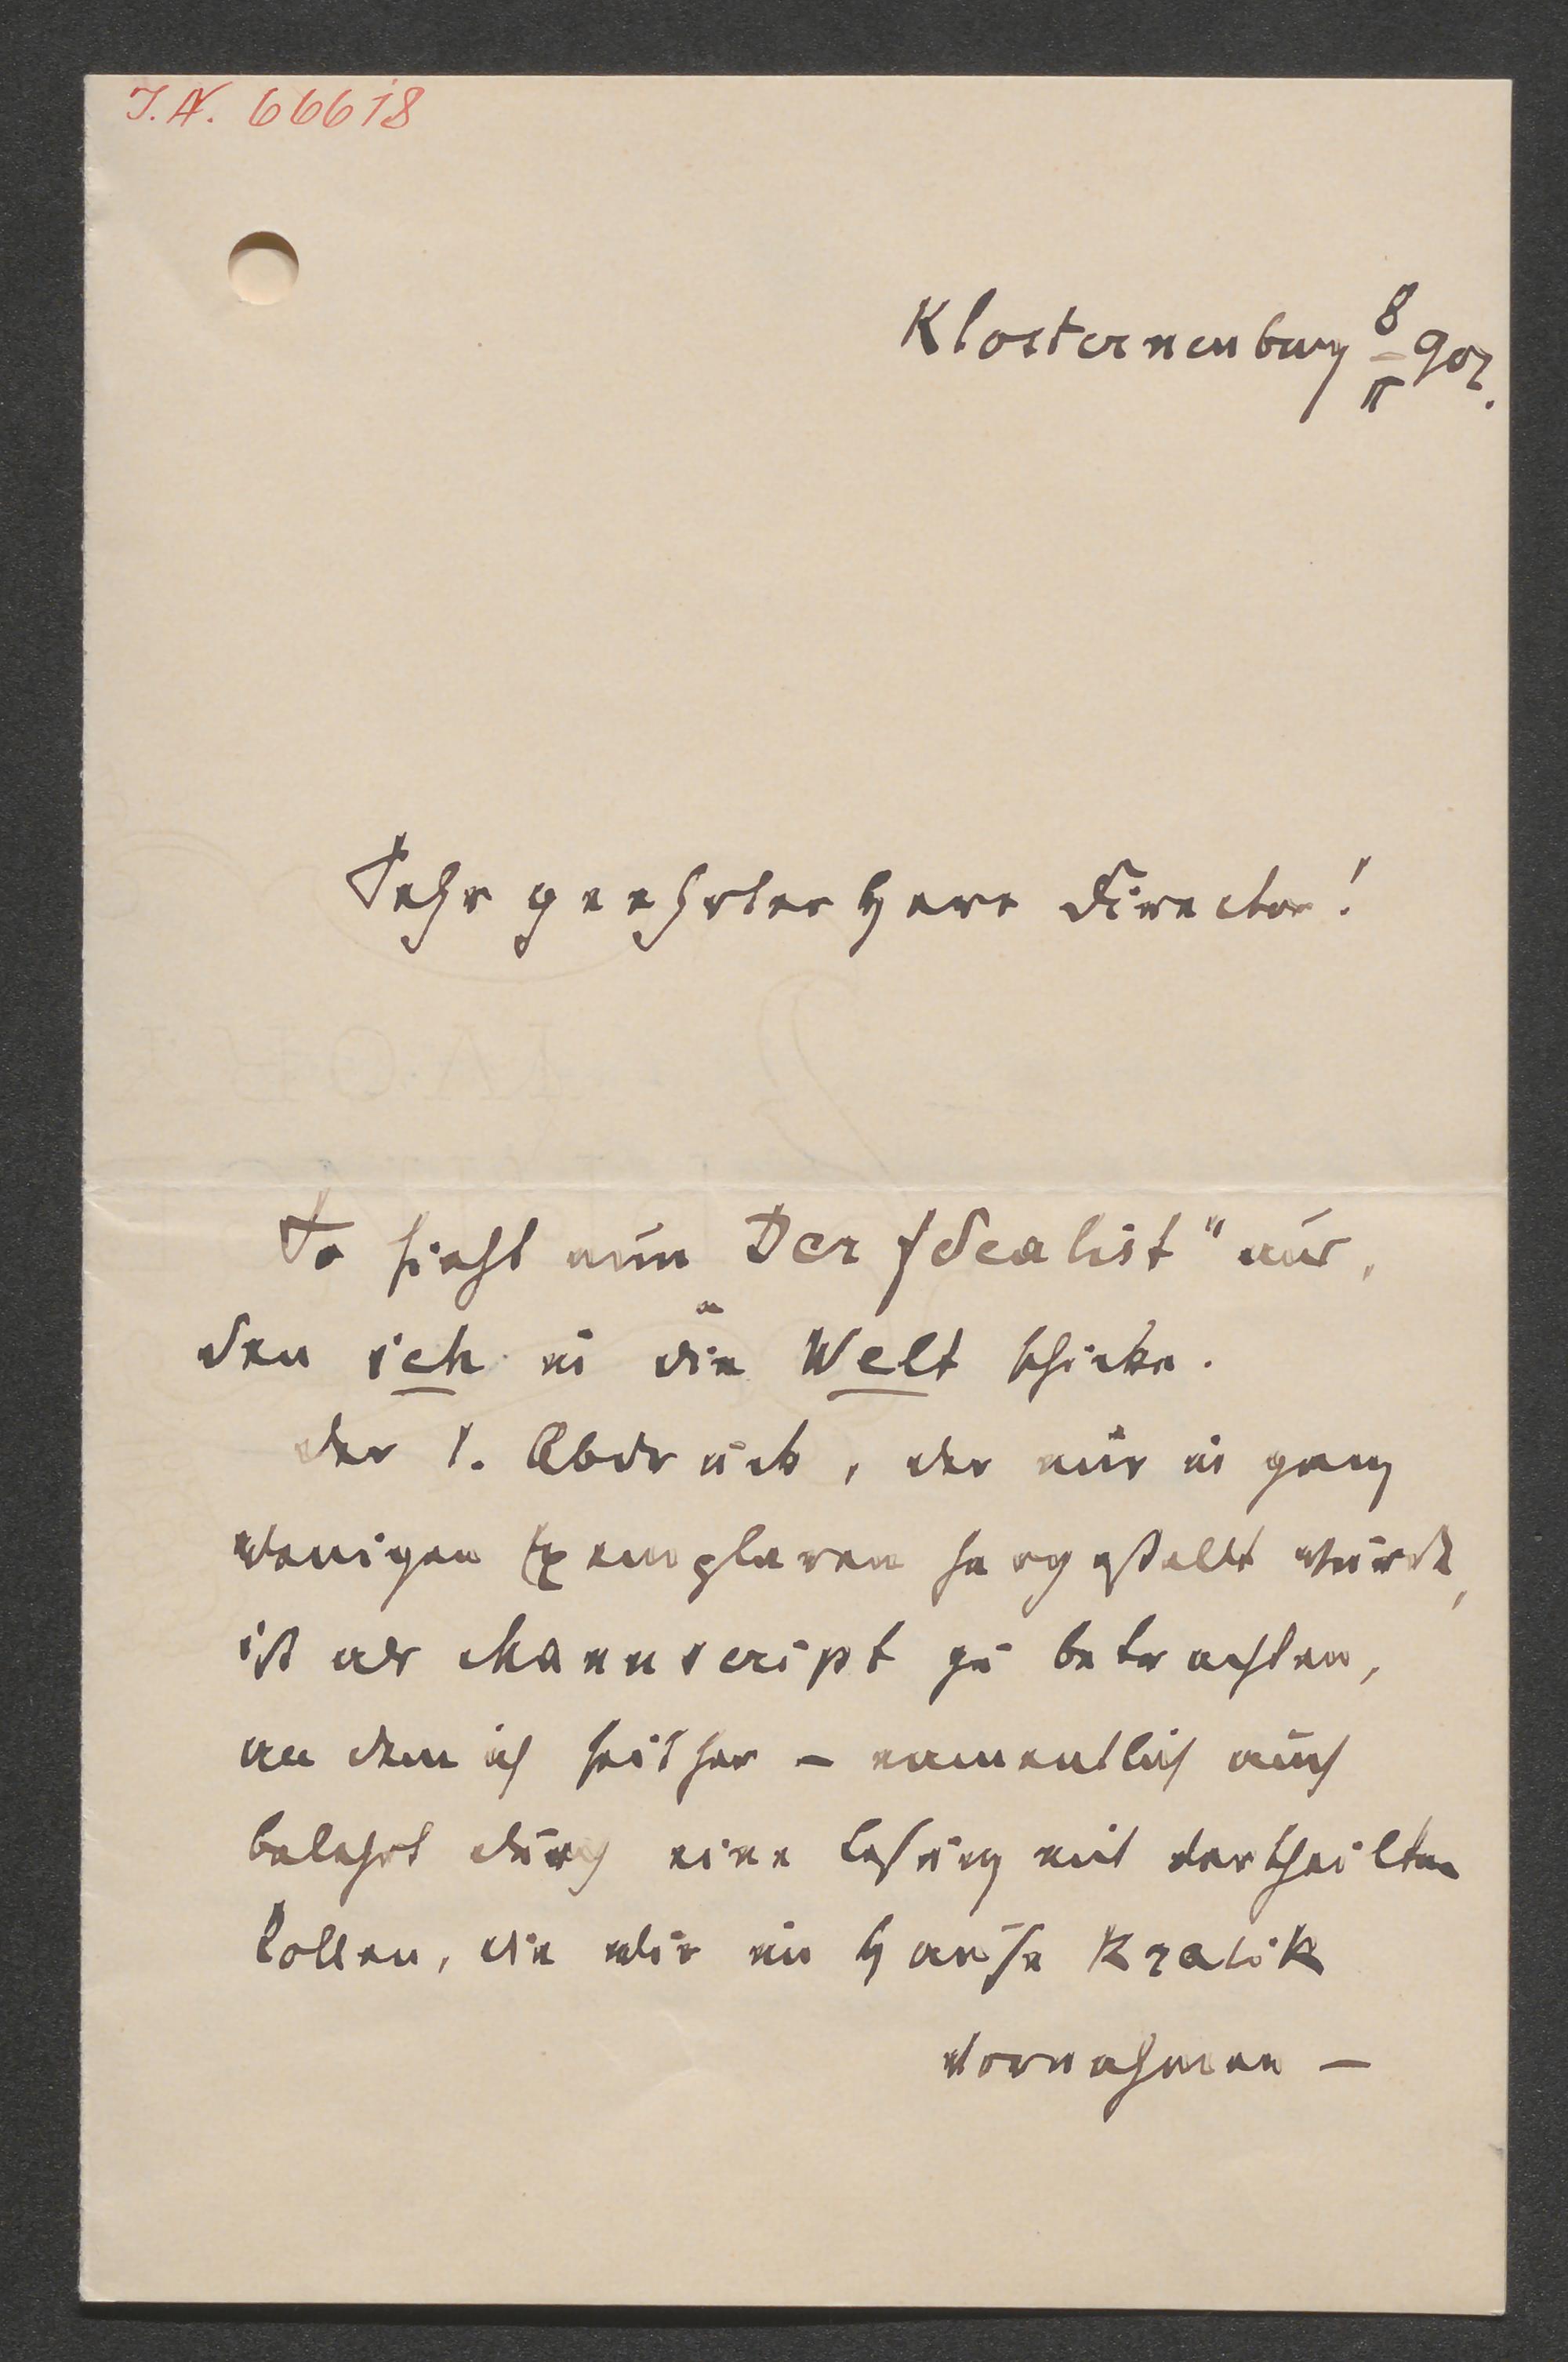 J.N. 66618
Klosterneuburg 8/II 902.
Sehr geehrter Herr Director!
So sieht nun Der Idealist" aus,
den ich in die Welt schicke.
Der 1. Abdruck, der nur in ganz
wenigen Exemplaren hergestellt wurde,
ist als Manuscript zu betrachten,
an dem ich seither – namentlich auch
belehrt durch eine Lesung mit vertheilten
Rollen, die wir im Hause Kralik
vornahmen –